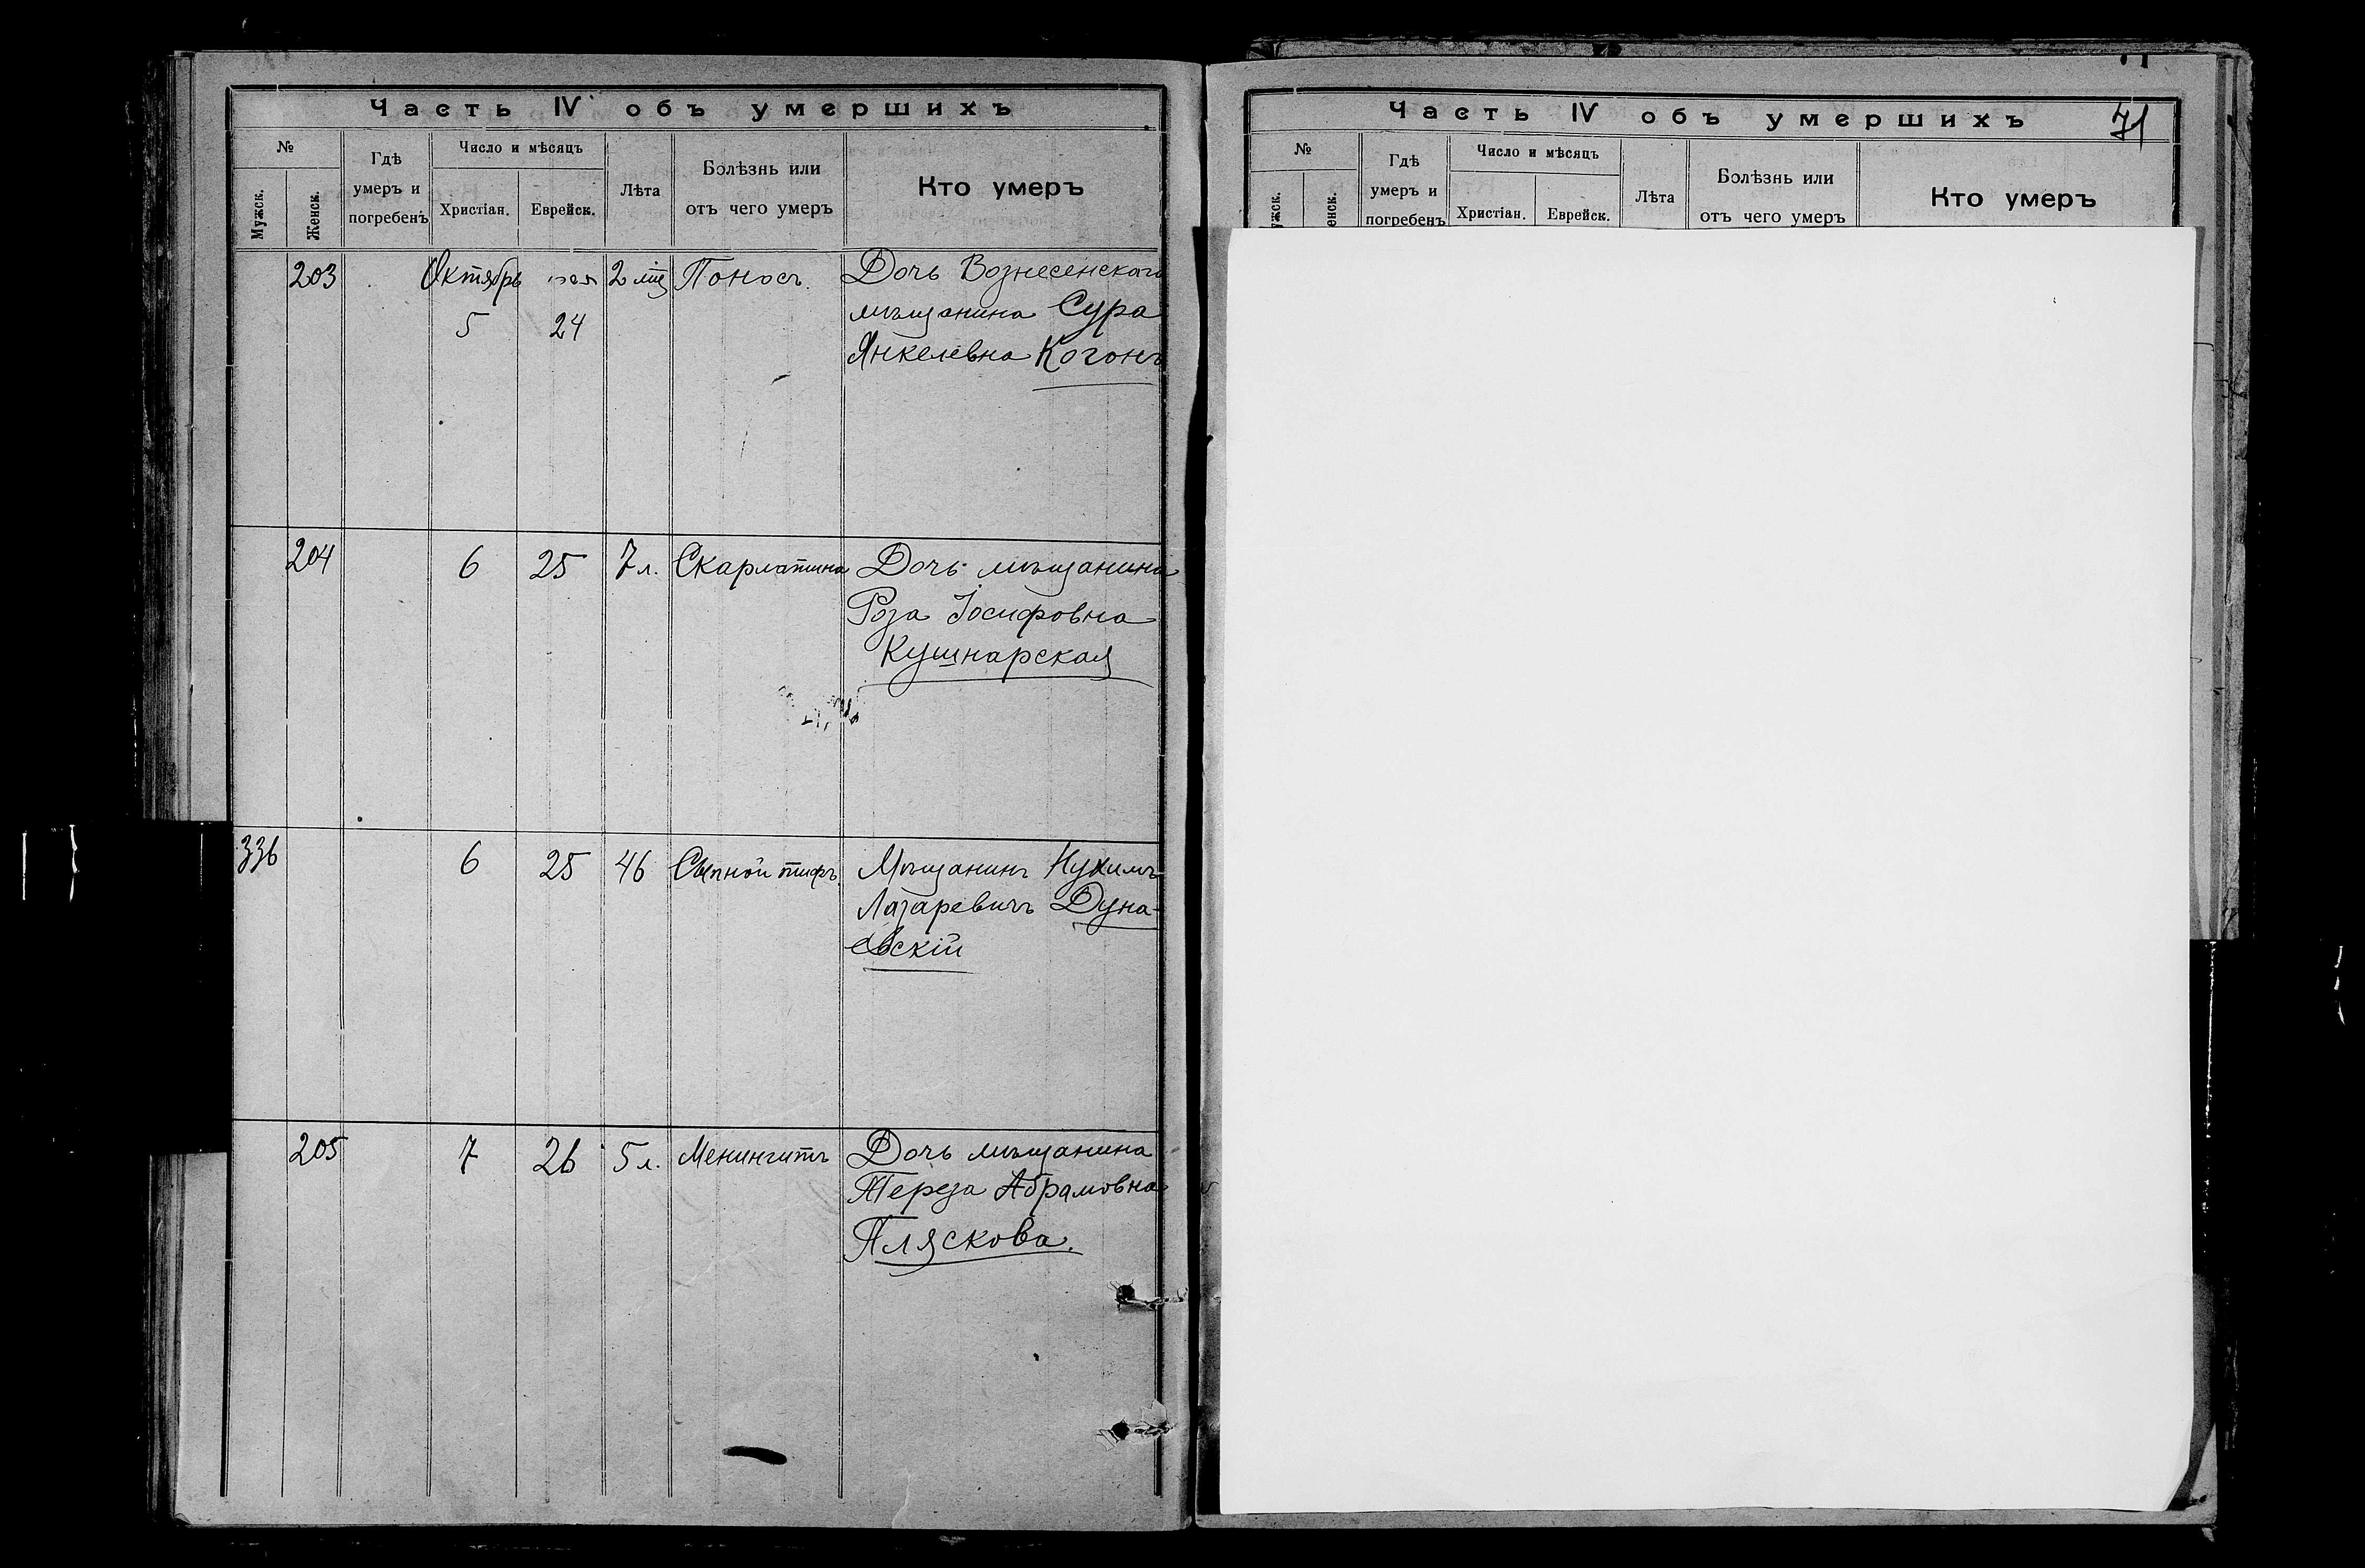 Часть IV объ умершихъ
№
Мужск.
Женск.
Гдѣ
умеръ и
погребенъ
Число и мѣсяцъ
Христіан.
Еврейск.
Лѣта
Болѣзнь или
отъ чего умеръ
Кто умеръ
203
Октябрь
5
24
2
Поносъ.
Дочь Вознесенскаго
мѣщанина Сура
Янкелевна Когонъ
204
6
25
7 л.
Скарлатина
Дочь мѣщанина
Роза Іосифовна
Кушнарская
336
6
25
46
Сыпной тифъ.
Мѣщанинъ Нухимъ
Лазаревичъ Дуна-
евскій
205
7
26
5 л.
Менингитъ
Дочь мѣщанина
Тереза Абрамовна
Пляскова.
Часть IV объ умершихъ
71
№
ужск.
енск.
Гдѣ
умеръ и
погребенъ
Число и мѣсяцъ
Христіан.
Еврейск.
Лѣта
Болѣзнь или
отъ чего умеръ
Кто умеръ